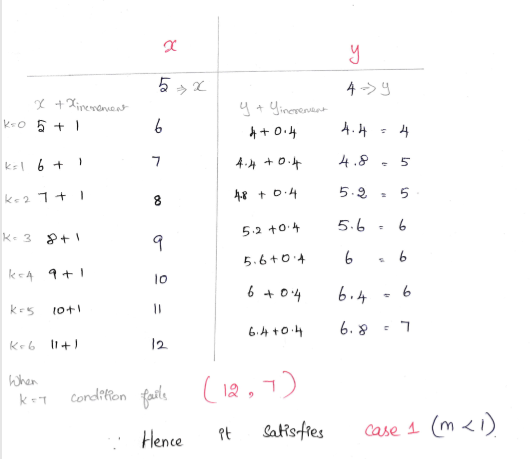 x y
5 ⇒ x 4 ⇒ y
x + xincrement y + yincrement
k=0 5 + 1 6 4 + 0.4 4.4 = 4
k=1 6 + 1 7 4.4 + 0.4 4.8 = 5
k=2 7 + 1 8 4.8 + 0.4 5.2 = 5
k=3 8+1 9 5.2 +0.4 5.6 = 6
k=4 9+1 10 5.6+0.4 6 = 6
k=5 10+1 11 6 + 0.4 6.4 = 6
k=6 11+1 12 6.4+0.4 6.8 = 7
When
k=7 condition fails (12, 7)
∵ Hence it satisfies case 1 (m < 1)